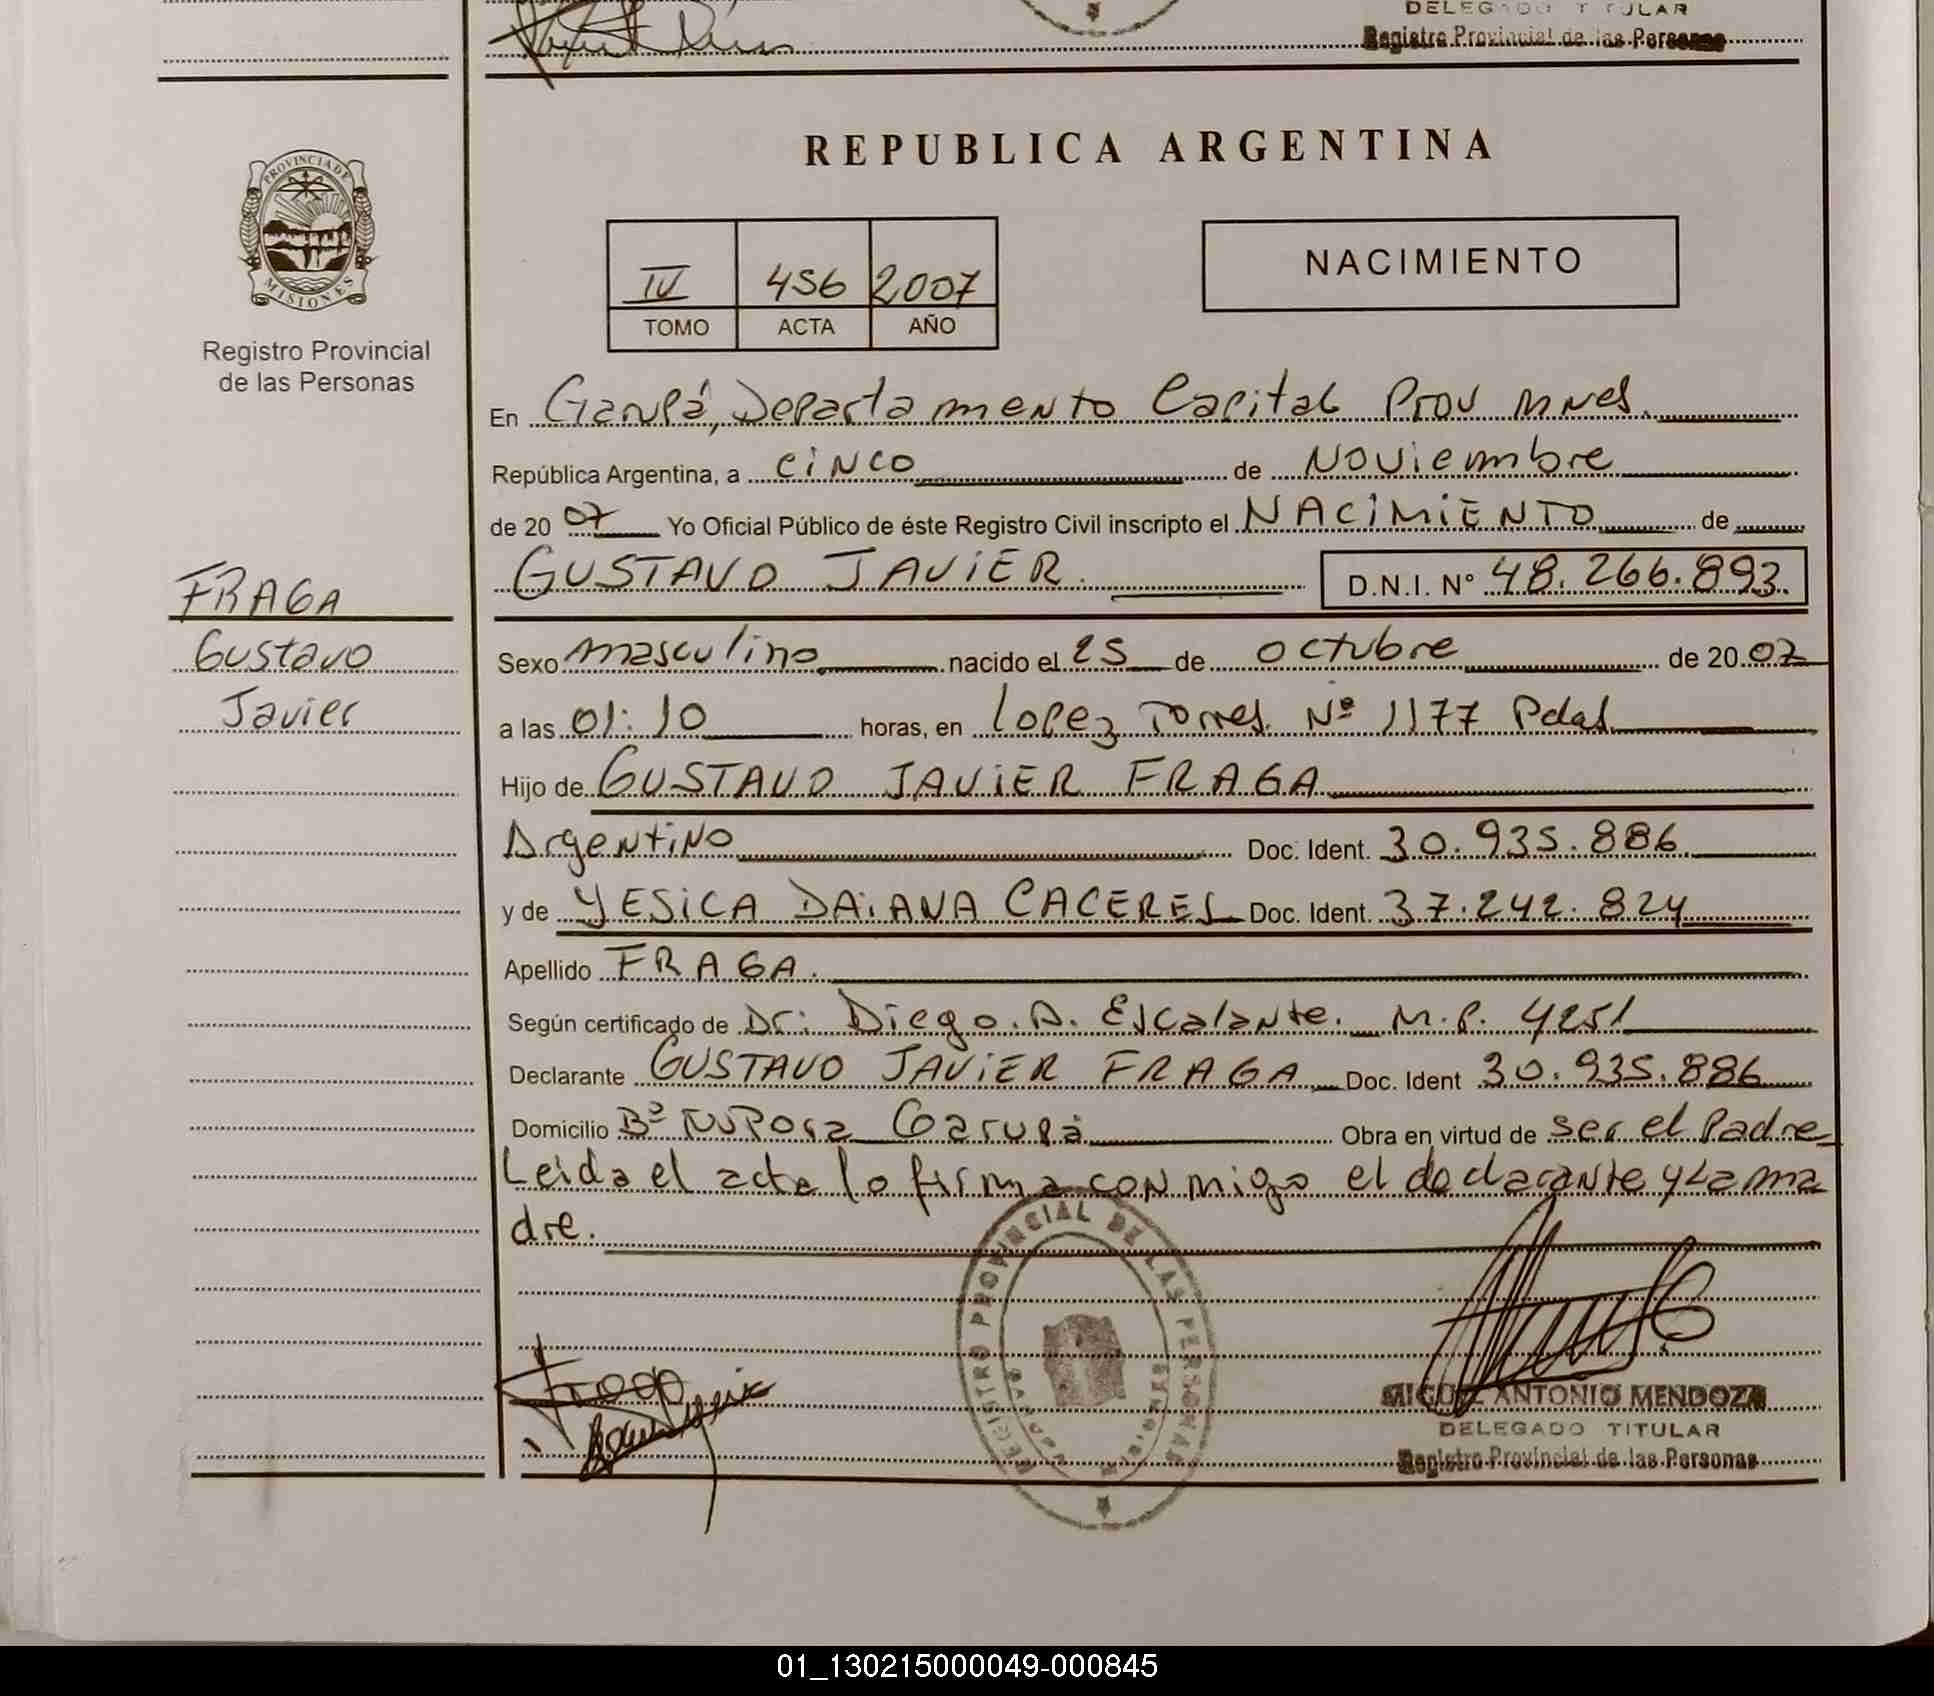 DELEGADO TITULAR
Registro Provincial de las Personas
REPUBLICA ARGENTINA
PROVINCIA DE
MISIONES
Registro Provincial
de las Personas
IV 456 2007
TOMO ACTA AÑO
NACIMIENTO
En Garupá, Departamento Capital Prov Mnes.
República Argentina, a cinco de Noviembre
de 2007 Yo Oficial Público de éste Registro Civil inscripto el NACIMIENTO de
GUSTAVO JAVIER. D.N.I. Nº 48.266.893.
FRAGA
Gustavo
Javier
Sexo masculino nacido el 25 de octubre de 2007
a las 01:10 horas, en Lopez Torres. Nº 1177 Pdas.
Hijo de GUSTAVO JAVIER FRAGA
Argentino Doc. Ident. 30.935.886
y de YESICA DAIANA CACERES Doc. Ident. 37.242.824
Apellido FRAGA.
Según certificado de Dr: Diego. A. Escalante. M.P. 4251
Declarante GUSTAVO JAVIER FRAGA Doc. Ident 30.935.886
Domicilio Bº Garupá Obra en virtud de ser el Padre
Leida el acta lo firma conmigo el declarante y la ma
dre.
REGISTRO PROVINCIAL DE LAS PERSONAS
MIGUEL ANTONIO MENDOZA
DELEGADO TITULAR
Registro Provincial de las Personas
01_130215000049-000845